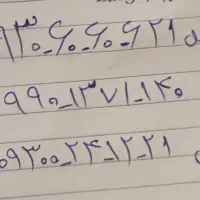 ۹۳۰_۶۰_۶۰_۶۲۱
۹۹۰_۱۳۷۱_۱۴۰
۰۹۳۰۰_۲۴_۱۲_۲۱